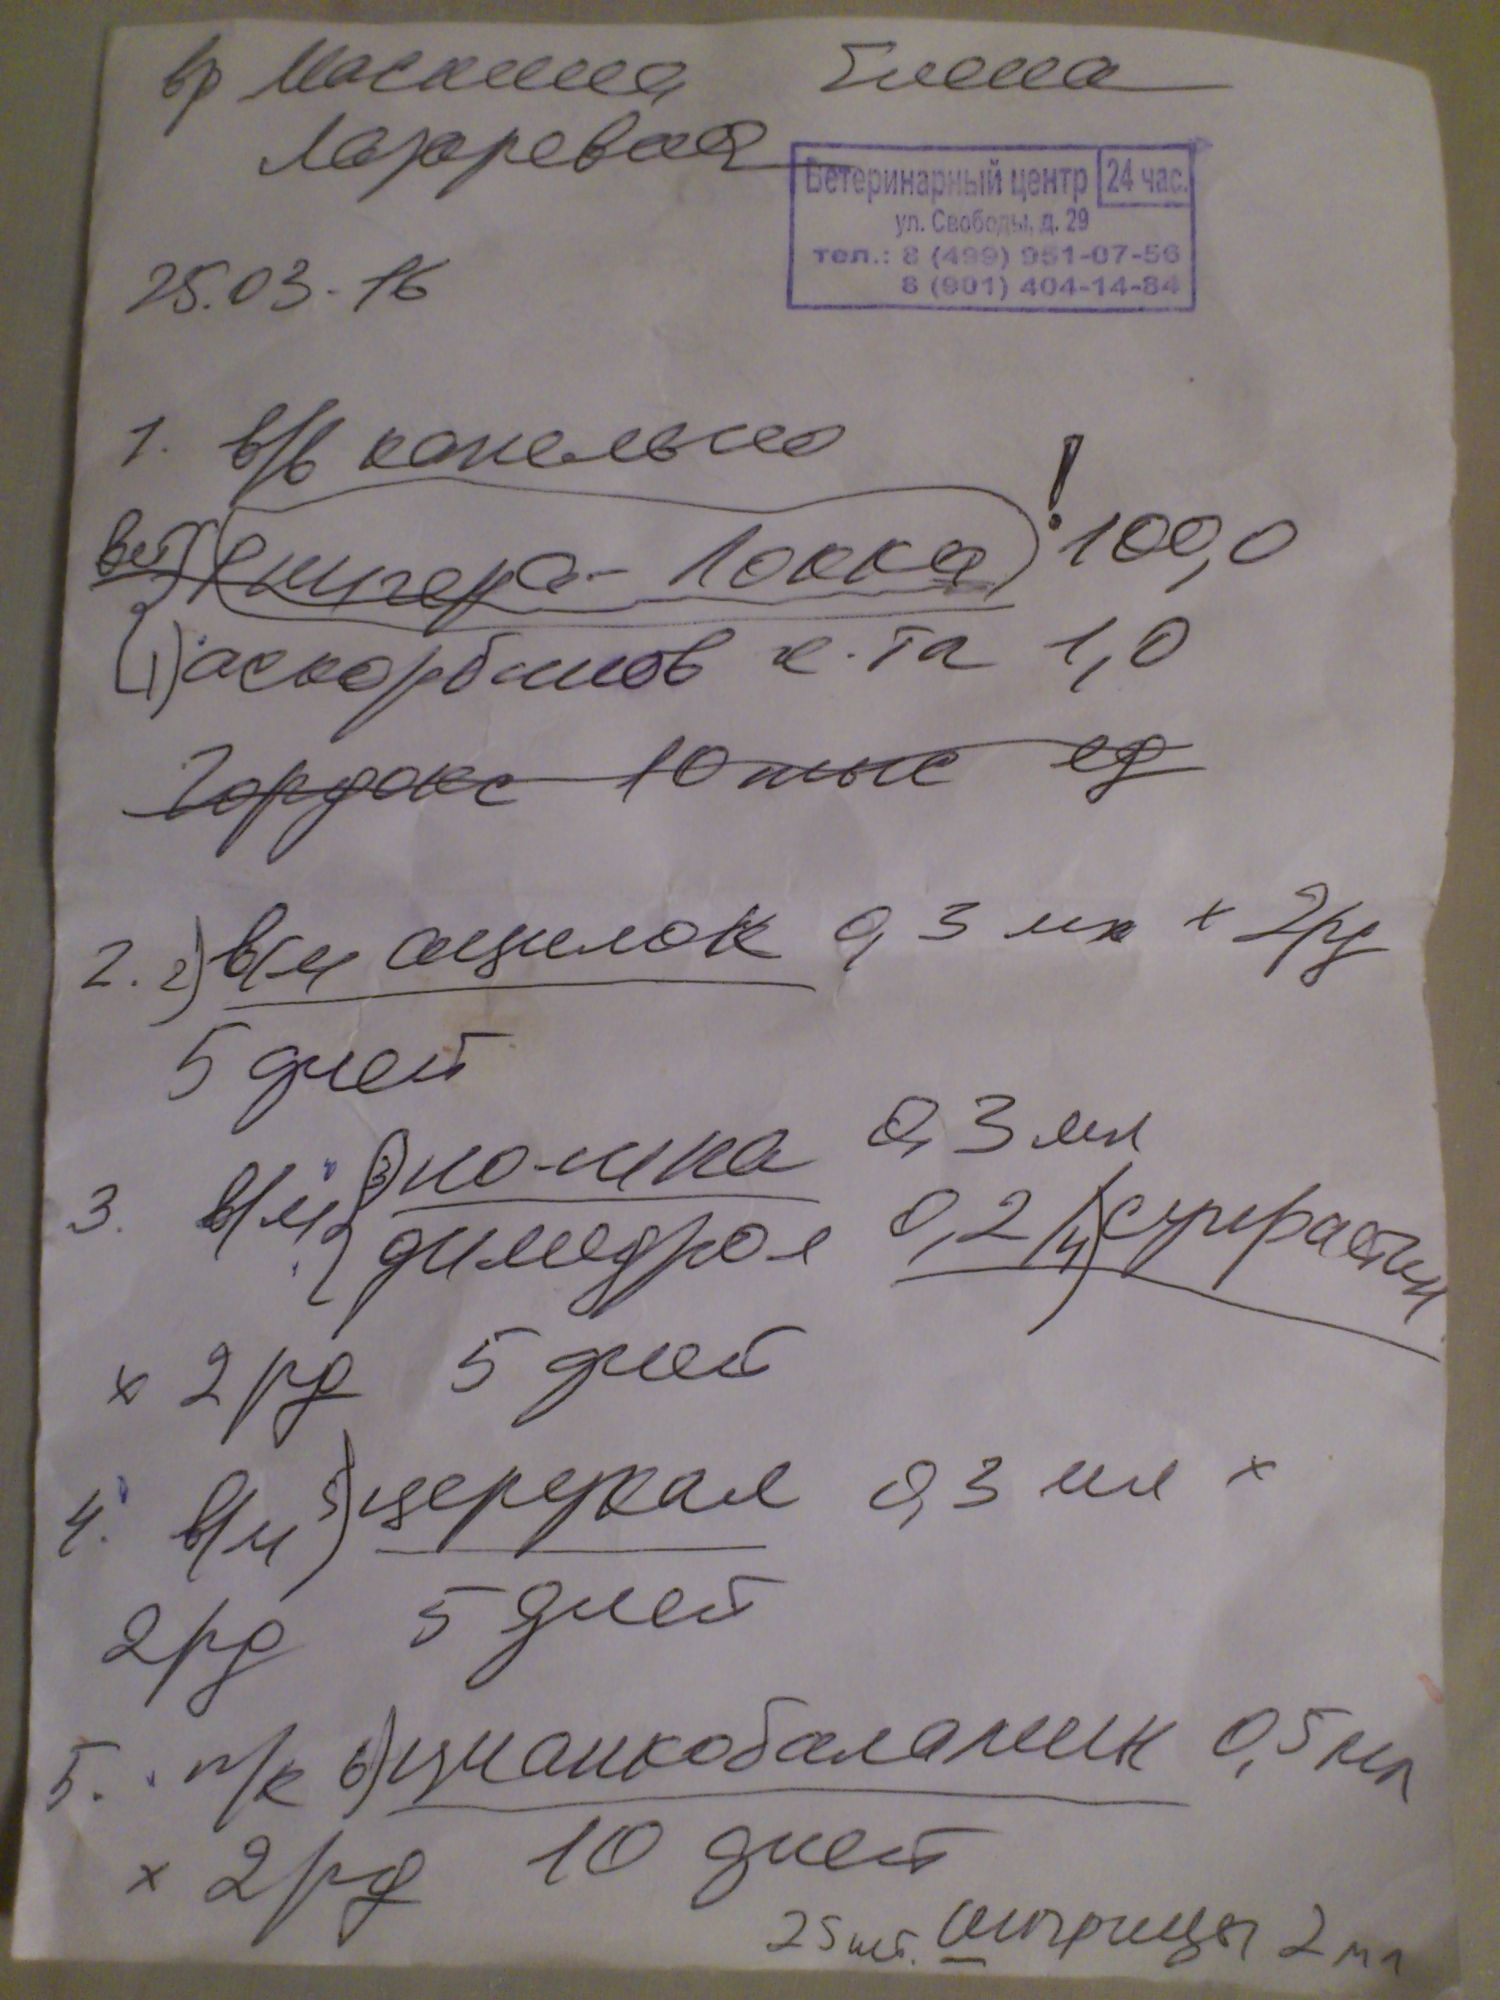 вр Маскина Елена
Лазаревна
Ветеринарный центр 24 час.
ул. Свободы, д. 29
тел.: 8 (499) 951-07-56
8 (901) 404-14-84
25.03.16
1. в/в капельно
вет) Рингера-Локка ! 100,0
1) аскорбинов к.та 1,0
Гордокс 10 тыс ед
2. 2) в/м оцилок 0,3 мл x 2рд
5 дней
3. в/м 3) но-шпа 0,3 мл
димедрол 0,2 / 4) супрастин
x 2рд 5 дней
4. в/м 5) церукал 0,3 мл x
2рд 5 дней
5. п/к 6) цианкобаламин 0,5 мл
x 2рд 10 дней
25шт. шприцы 2мл